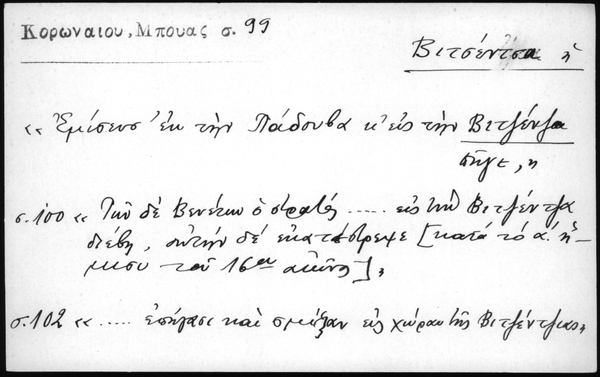 Κορωναιου, Μπουας σ. 99
Βιτσέντσα ἡ
« Ἐμίσευσ' ἐκ τὴν Πάδουβα κ' εἰς τὴν Βιτζέντζα
πῆγε, »
σ. 100 « Τῶν δὲ Βενέτων ὁ στρατός ..... εἰς τὴν Βιτζέντζα
διέβη, αὐτὴν δὲ ἐκατάστρεψε [κατὰ τὸ α. ἥ-
μισυ τοῦ 16ου αἰῶνος] »
σ. 102 « ..... ἐπήγασι καὶ σμίξαν εἰς χώραν τῆς Βιτζέντζας »